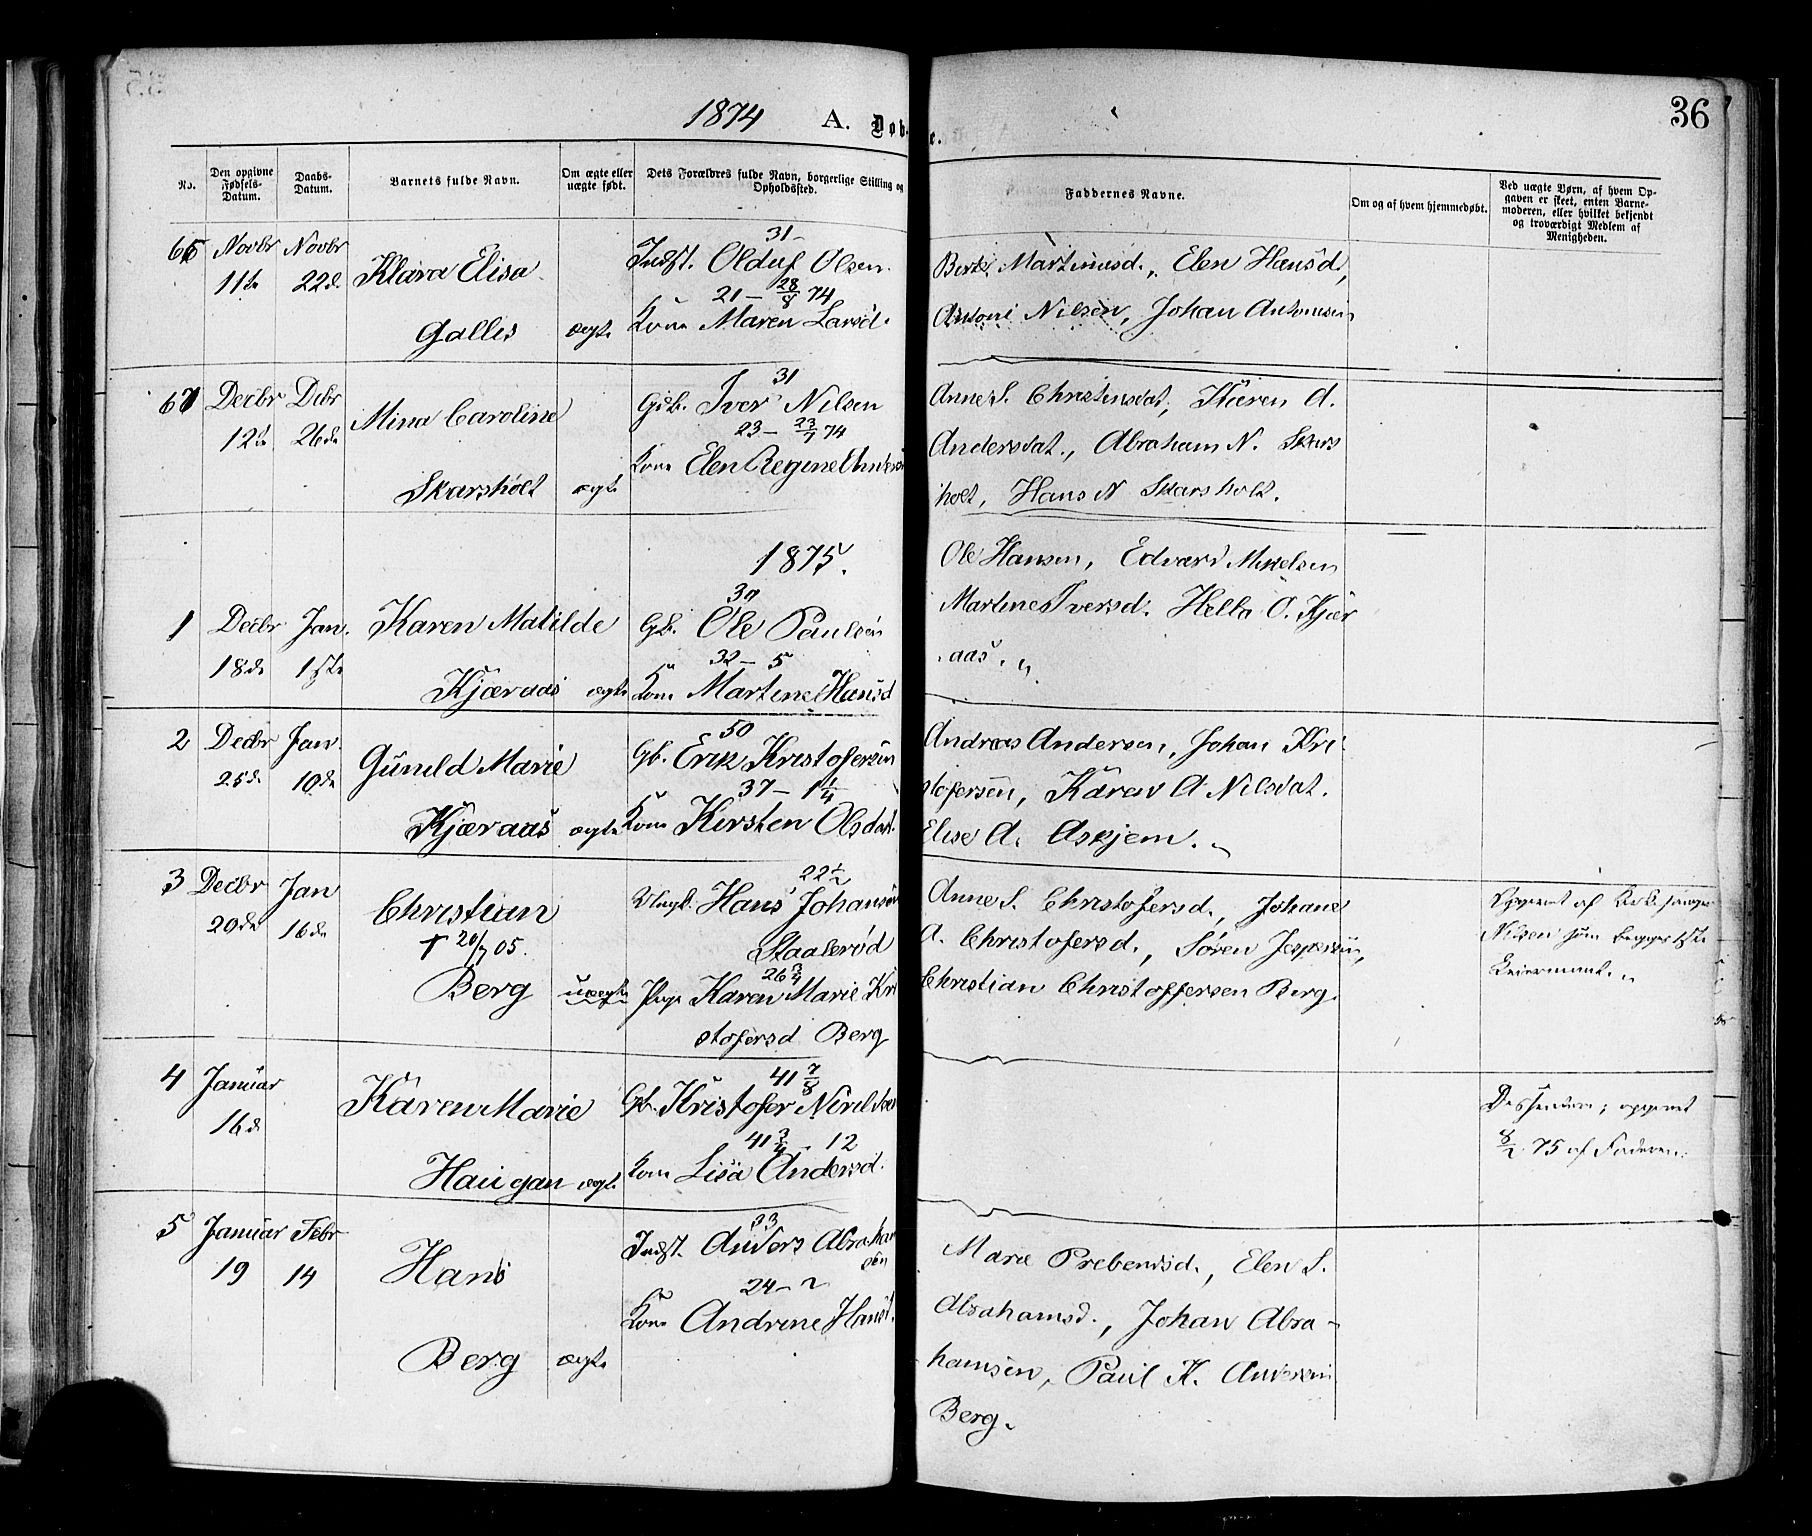 36
1874 A. Døb- e.
No.
Den opgivne Fødsels-Datum.
Daabs-Datum.
Barnets fulde Navn.
Om ægte eller uægte født.
Dets Forældres fulde Navn, borgerlige Stilling og Opholdssted.
Faddernes Navne.
Om og af hvem hjemmedøbt.
Ved uægte Børn, af hvem Opgaven er skeet, enten Barnemoderen, eller hvilket bekjendt og troværdigt Medlem af Menigheden.
66 Novbr Novbr
11te 22de
Klara Elisa
Galles ægte
31 -
Indst. Olduf Olsen.
21 - 28/8 74
Kone Maren Larsd.
Martinusd., Elen Hansd,
Antoni Nilsen, Johan Antonisen
67 Decbr Dcbr
12te 26de
Mina Caroline
Skarsholt ægte
31
Gdb. Iver Nilsen
23 - 23/7 74
Kone Elen Regine
Anne S. Christensdat, Karen A.
Andersdat., Abraham N. Skars
holt, Hans N Skarsholt.
1875.
1 Decbr Jan.
18de 1ste
Karen Matilde
Kjæraas ægte
Gb. Ole Paulsen
32 - 5
Kone Martine Hansd
Ole Hansen, Edvard Mikelsen
Martine Iversd. Hella O. Kjær
aas.
2 Decbr Jan.
25de 10de
Guneld Marie
Kjæraas ægte
50
Gb. Erik Kristofersen
37 - 1 1/4
Kone Kirsten Olsdat.
Andreas Andersen, Johan Kri
stofersen, Karen A Nilsdat.
Elise A. Askjem.
3 Decbr Jan
20de 16de
Christian
† 20/7 05.
Berg uægte
22 1/2
Ungk. Hans Johansen
Staalerød
26 3/4
Pige Karen Marie Kri
stofersd Berg
Anne S. Christofersd., Johane
A. Christofersd., Søren Jespersen,
Christian Christoffersen Berg.
Opgevet af
Nilsen som begges 1ste
Leiermaal.
4 Januar
16de
Karen Marie
Haugan ægte
41 7/8
Gb. Kristofer
41 3/4 - 12
Kone Lisa Andersd.
opgevet
8/2 75 af Faderen.
5 Januar Febr
19 14
Hans
Berg ægte
33
Indst. Anders Abraham
sen
24 - 2
Kone Andrine Hansd.
Maria Prebensd., Elen S.
Abrahamsd., Johan Abra-
hamsen, Paul K. Andersen
Berg.